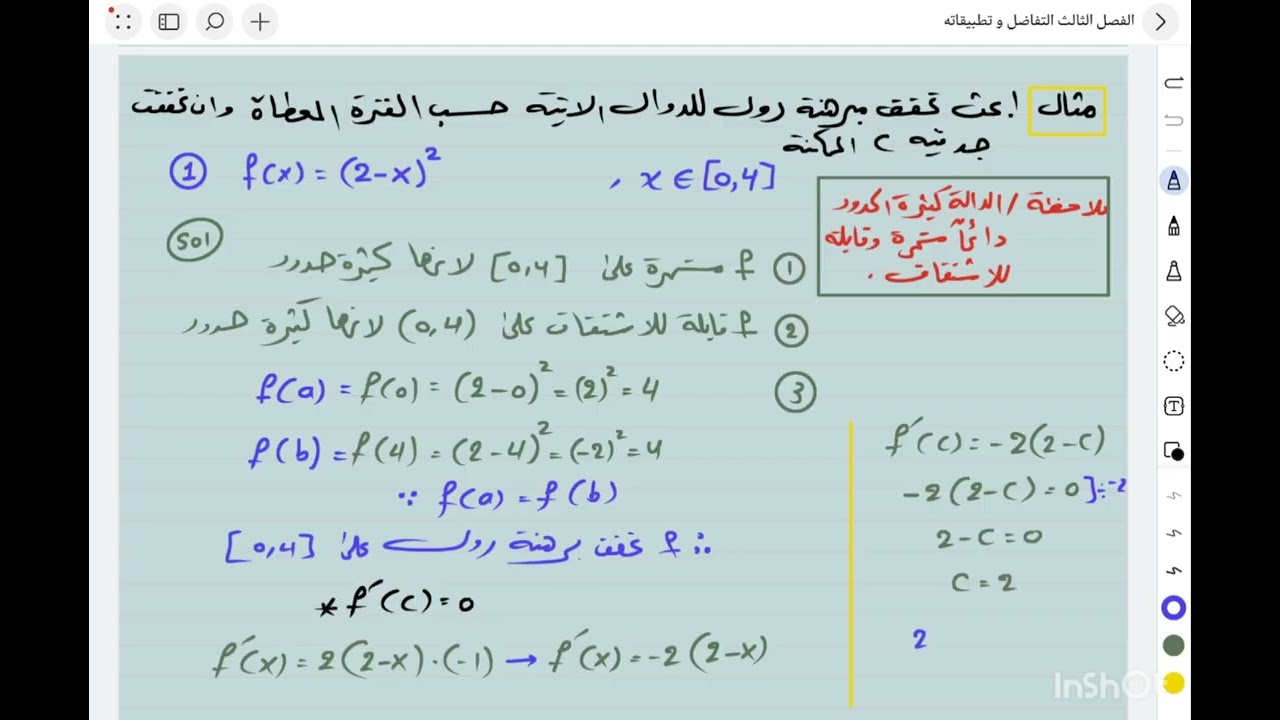 الفصل الثالث التفاضل و تطبيقاته
مثال / بحث تحقق مبرهنة رول للدوال الاتية حسب الفترة المعطاة وان تحققت
جد قيمة c الممكنة
① f(x) = (2-x)² , x ∈ [0,4]
ملاحظة / الدالة كثيرة الحدود
دائماً مستمرة وقابلة
للاشتقاق .
Sol
① f مستمرة على [0,4] لانها كثيرة حدود
② f قابلة للاشتقاق على (0,4) لانها كثيرة حدود
③ f(a) = f(0) = (2-0)² = (2)² = 4
f(b) = f(4) = (2-4)² = (-2)² = 4
∵ f(a) = f(b)
∴ f تحقق مبرهنة رول على [0,4]
* f′(c) = 0
f′(x) = 2(2-x)·(-1) → f′(x) = -2(2-x)
f′(c) = -2(2-c)
-2(2-c) = 0] ÷ -2
2-c = 0
c = 2
2
InShOt